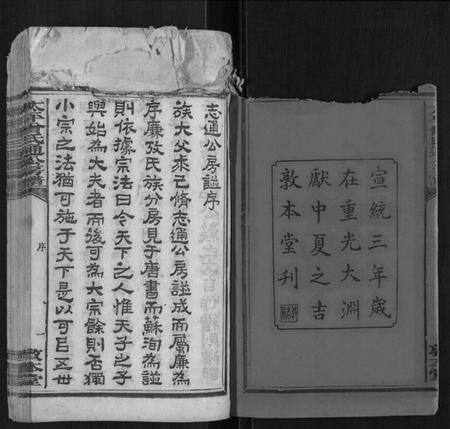 宣統三年歲
在重光大淵
獻中夏之吉
敦本堂刊
志通公房諡序
族大父來己脩志通公房諡成而屬廉為
序廉攷氏族分房見于唐書而蘇洵為諡
則依據宗法曰今天下之人惟天子之子
與始為大夫者而後可為大宗餘則否獨
小宗之法猶可施于天下是以可已五世
序
一
敦本堂